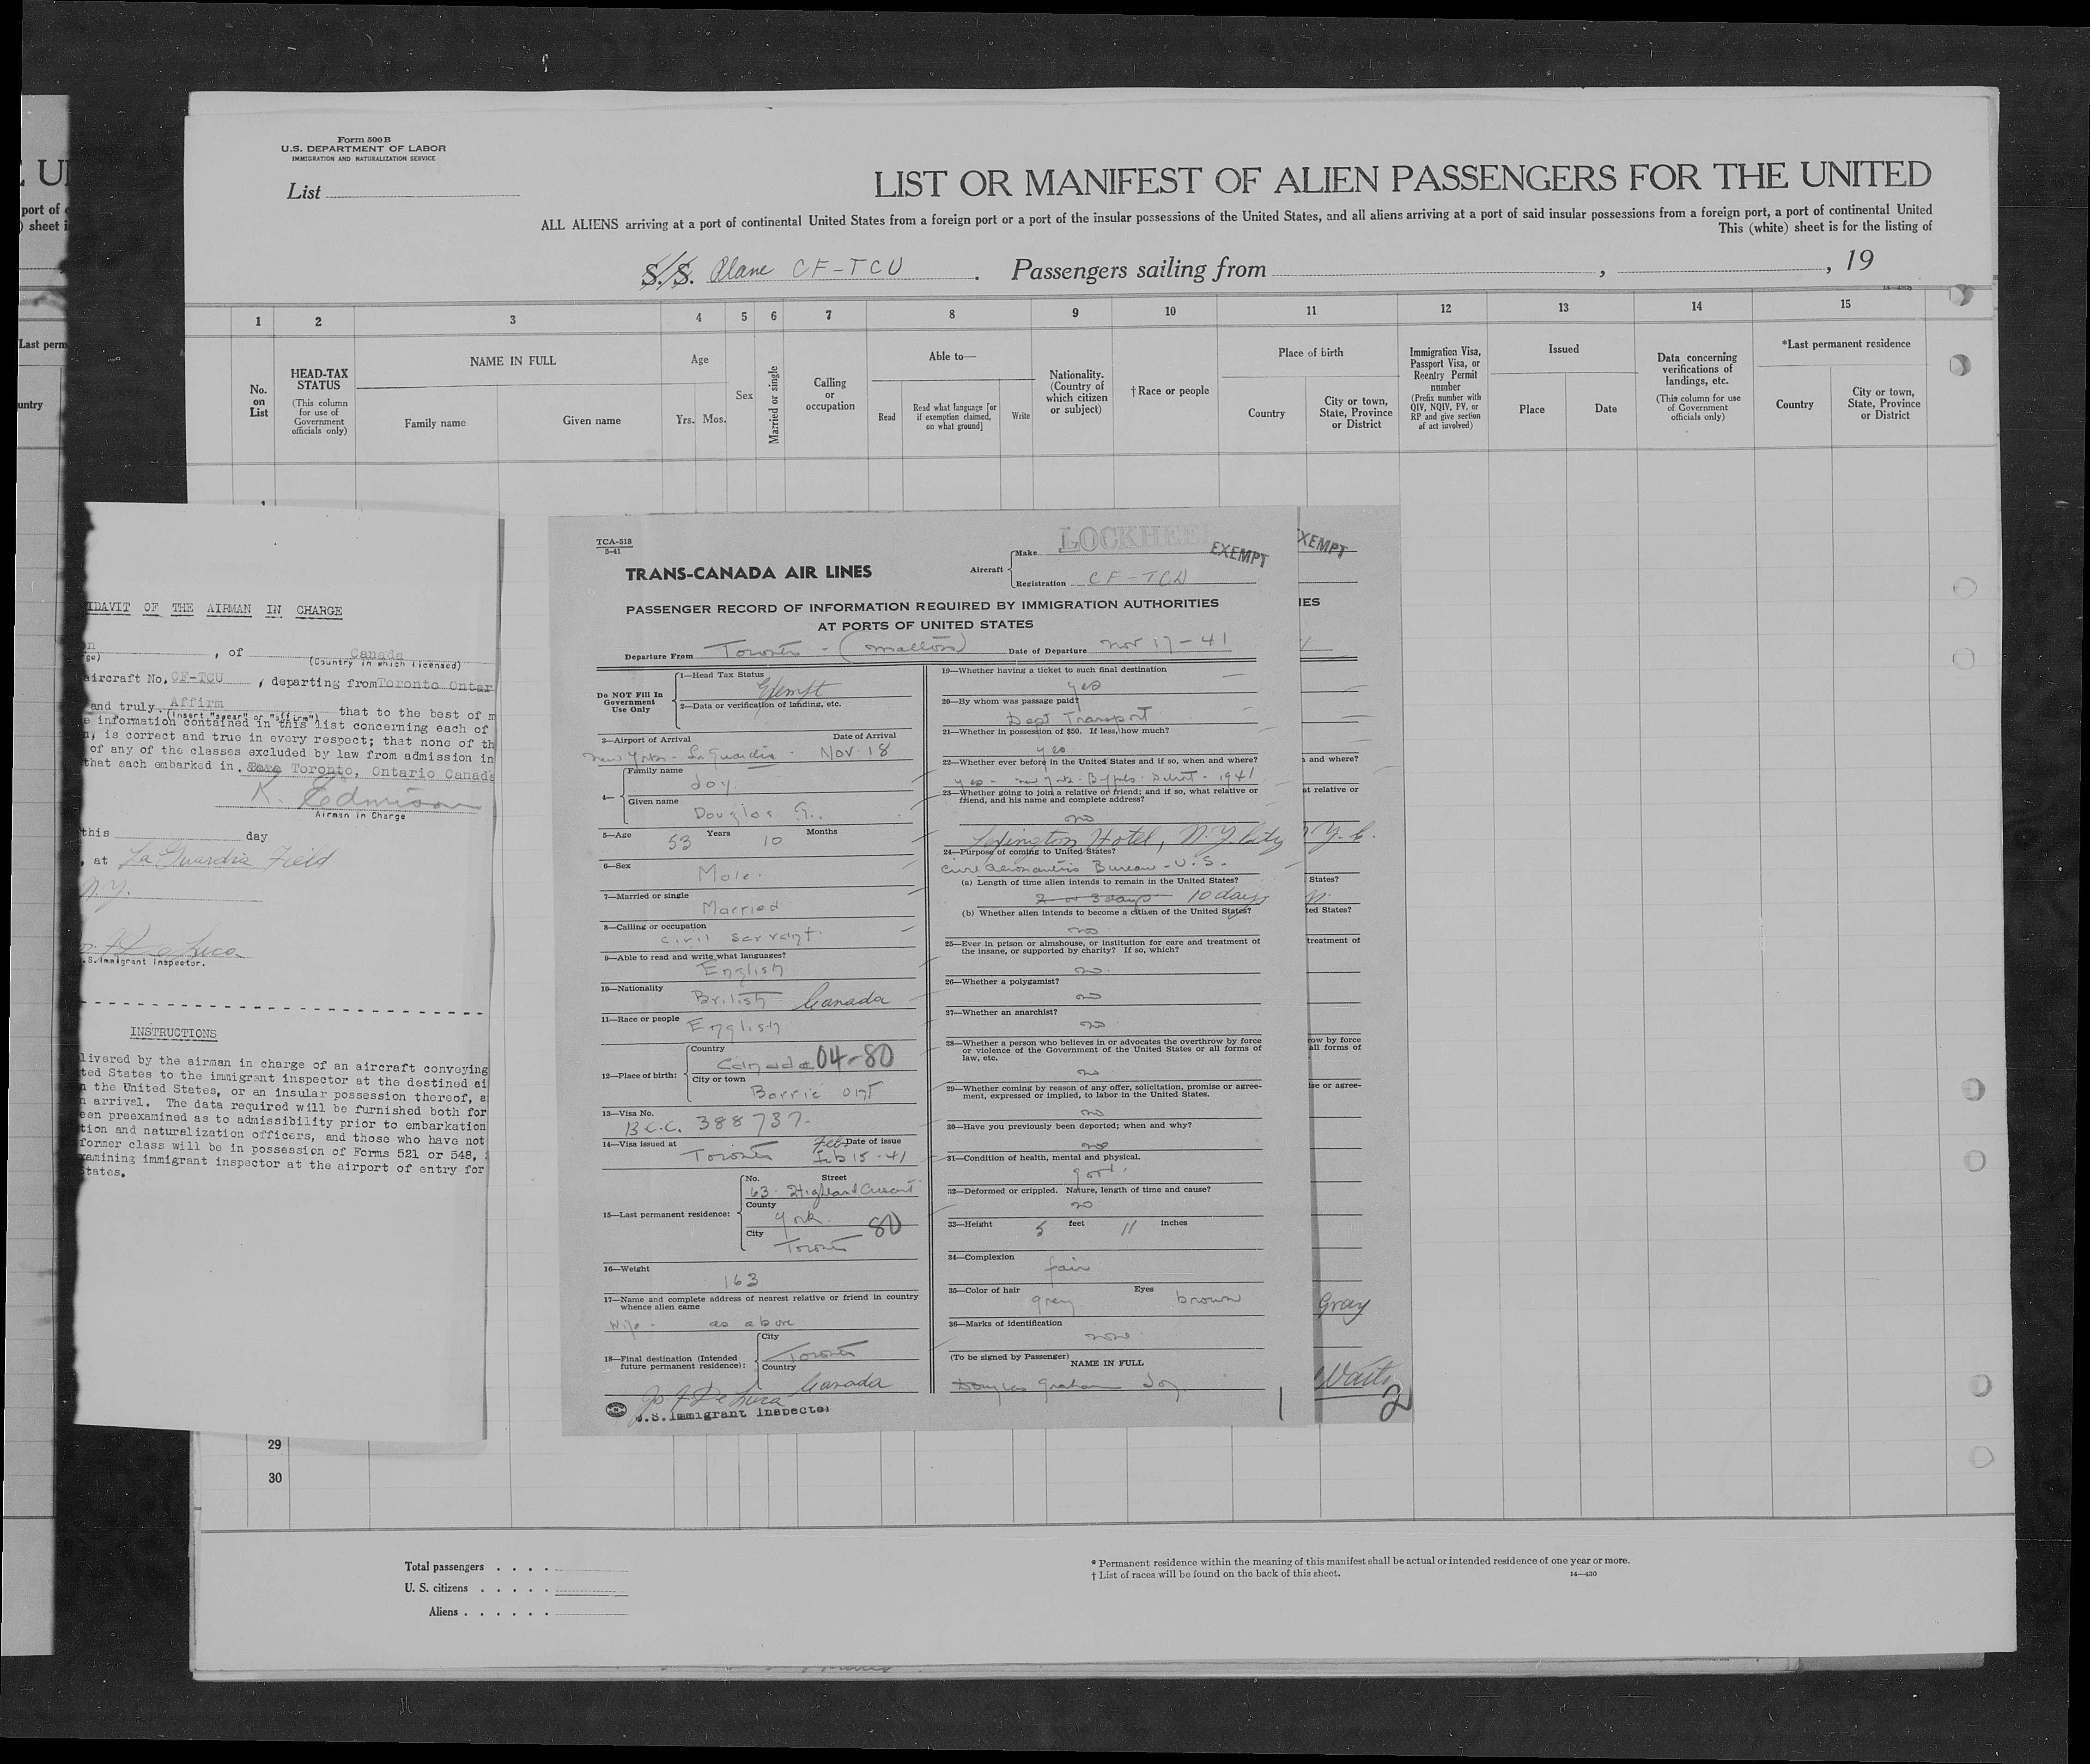 Form 500 B
U.S. DEPARTMENT OF LABOR
IMMIGRATION AND NATURALIZATION SERVICE
List
LIST OR MANIFEST OF ALIEN PASSENGERS FOR THE UNITED
ALL ALIENS arriving at a port of continental United States from a foreign port or a port of the insular possessions of the United States, and all aliens arriving at a port of said insular possessions from a foreign port, a port of continental United
This (white) sheet is for the listing of
S.S. Plane CF-TCU . Passengers sailing from , , 19
1 2 3 4 5 6 7 8 9 10 11 12 13 14 15
No. on List
HEAD-TAX STATUS
(This column for use of Government officials only)
NAME IN FULL
Family name Given name
Age
Yrs. Mos.
Sex
Married or single
Calling or occupation
Able to—
Read
Read what language [or if exemption claimed, on what ground]
Write
Nationality. (Country of which citizen or subject)
†Race or people
Place of birth
Country
City or town, State, Province or District
Immigration Visa, Passport Visa, or Reentry Permit number
(Prefix number with QIV, NQIV, PV, or RP and give section of act involved)
Issued
Place Date
Data concerning verifications of landings, etc.
(This column for use of Government officials only)
*Last permanent residence
Country
City or town, State, Province or District
IDAVIT OF THE AIRMAN IN CHARGE
, of Canada
(Country in which licensed)
aircraft No. CF-TCU , departing from Toronto Ontar
and truly Affirm that to the best of m
(Insert "swear" or "affirm")
e information contained in this list concerning each of
, is correct and true in every respect; that none of th
of any of the classes excluded by law from admission in
that each embarked in Toronto, Ontario Canada
K. Edmison
Airman in Charge
this day
, at La Guardia Field
N.Y.
De Luca
.S. Immigrant Inspector.
INSTRUCTIONS
livered by the airman in charge of an aircraft conveying
ted States to the immigrant inspector at the destined ai
n the United States, or an insular possession thereof, a
n arrival. The data required will be furnished both for
een preexamined as to admissibility prior to embarkation
tion and naturalization officers, and those who have not
former class will be in possession of Forms 521 or 548,
amining immigrant inspector at the airport of entry for
States.
TCA-518
5-41
TRANS-CANADA AIR LINES
Aircraft
Make LOCKHEE
EXEMPT
Registration CF-TCU
PASSENGER RECORD OF INFORMATION REQUIRED BY IMMIGRATION AUTHORITIES
AT PORTS OF UNITED STATES
Departure From Toronto - (Malton) Date of Departure Nov 17-41
Do NOT Fill In Government Use Only
1—Head Tax Status
Exempt
2—Data or verification of landing, etc.
3—Airport of Arrival Date of Arrival
New York - La Guardia - Nov. 18
4—
Family name
Joy
Given name
Douglas G.
5—Age 53 Years 10 Months
6—Sex
Male.
7—Married or single
Married
8—Calling or occupation
civil servant.
9—Able to read and write what languages?
English
10—Nationality
British Canada
11—Race or people
English
12—Place of birth:
Country
Canada 04-80
City or town
Barrie Ont
13—Visa No.
B.C.C. 388737.
14—Visa issued at Date of issue
Toronto Feb 15-41
15—Last permanent residence:
No. Street
63. Highland Crescent
County
York. 80
City
Toronto
16—Weight
163
17—Name and complete address of nearest relative or friend in country
whence alien came
Wife - as above
18—Final destination (Intended
future permanent residence):
City
Toronto
Country
Canada
Jo. J De Luca
U.S. Immigrant Inspector
19—Whether having a ticket to such final destination
yes
20—By whom was passage paid?
Dept Transport
21—Whether in possession of $50. If less, how much?
yes
22—Whether ever before in the United States and if so, when and where?
yes - New York - Buffalo - Detroit - 1941
23—Whether going to join a relative or friend; and if so, what relative or
friend, and his name and complete address?
no
Lexington Hotel, N.Y. City
24—Purpose of coming to United States?
Civil Aeronautics Bureau - U.S.
(a) Length of time alien intends to remain in the United States?
2 or 3 days 10 days
(b) Whether alien intends to become a citizen of the United States?
no
25—Ever in prison or almshouse, or institution for care and treatment of
the insane, or supported by charity? If so, which?
no
26—Whether a polygamist?
no
27—Whether an anarchist?
no
28—Whether a person who believes in or advocates the overthrow by force
or violence of the Government of the United States or all forms of
law, etc.
no
29—Whether coming by reason of any offer, solicitation, promise or agree-
ment, expressed or implied, to labor in the United States.
no
30—Have you previously been deported; when and why?
no
31—Condition of health, mental and physical.
good.
32—Deformed or crippled. Nature, length of time and cause?
no
33—Height 5 feet 11 inches
34—Complexion
fair
35—Color of hair Eyes
grey brown
36—Marks of identification
none
(To be signed by Passenger)
NAME IN FULL
Douglas Graham Joy
1
XEMPT
IES
and where?
at relative or
Y. C.
States?
ted States?
treatment of
row by force
all forms of
se or agree-
Gray
2
29
30
Total passengers . . . .
U. S. citizens . . . . .
Aliens . . . . . .
* Permanent residence within the meaning of this manifest shall be actual or intended residence of one year or more.
† List of races will be found on the back of this sheet.
14—430